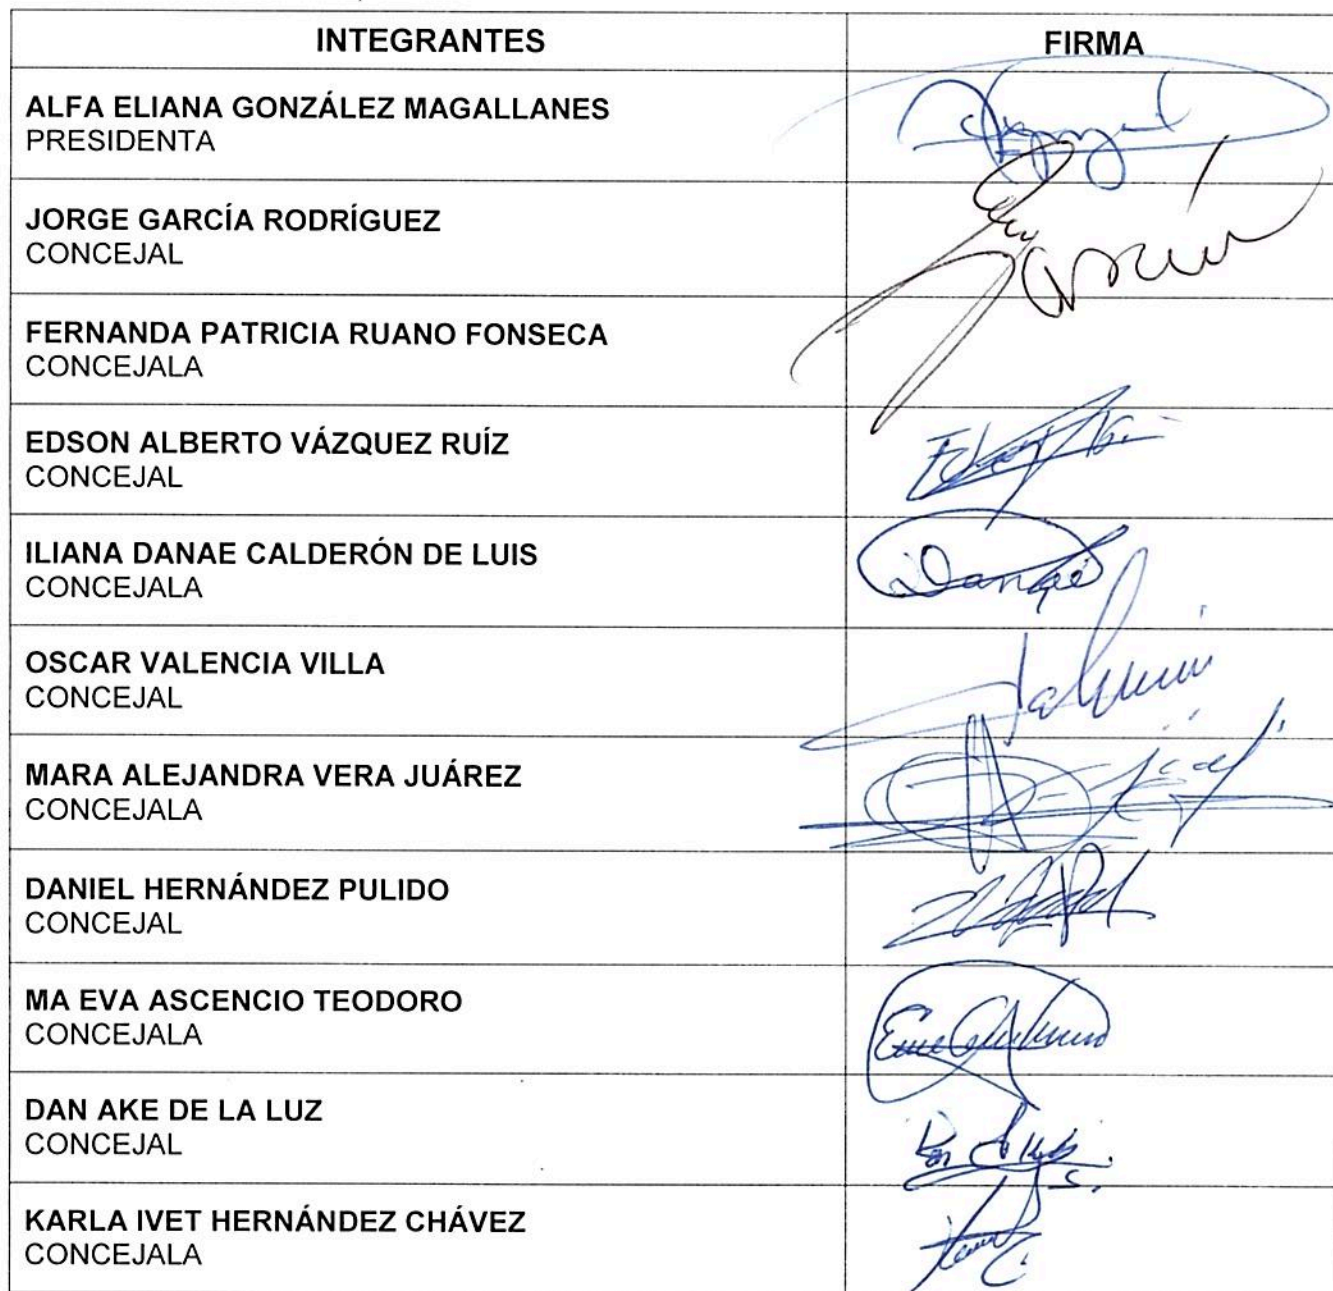 INTEGRANTES FIRMA
ALFA ELIANA GONZÁLEZ MAGALLANES
PRESIDENTA
JORGE GARCÍA RODRÍGUEZ
CONCEJAL
FERNANDA PATRICIA RUANO FONSECA
CONCEJALA
EDSON ALBERTO VÁZQUEZ RUÍZ
CONCEJAL
ILIANA DANAE CALDERÓN DE LUIS
CONCEJALA
Danae
OSCAR VALENCIA VILLA
CONCEJAL
MARA ALEJANDRA VERA JUÁREZ
CONCEJALA
DANIEL HERNÁNDEZ PULIDO
CONCEJAL
MA EVA ASCENCIO TEODORO
CONCEJALA
DAN AKE DE LA LUZ
CONCEJAL
KARLA IVET HERNÁNDEZ CHÁVEZ
CONCEJALA